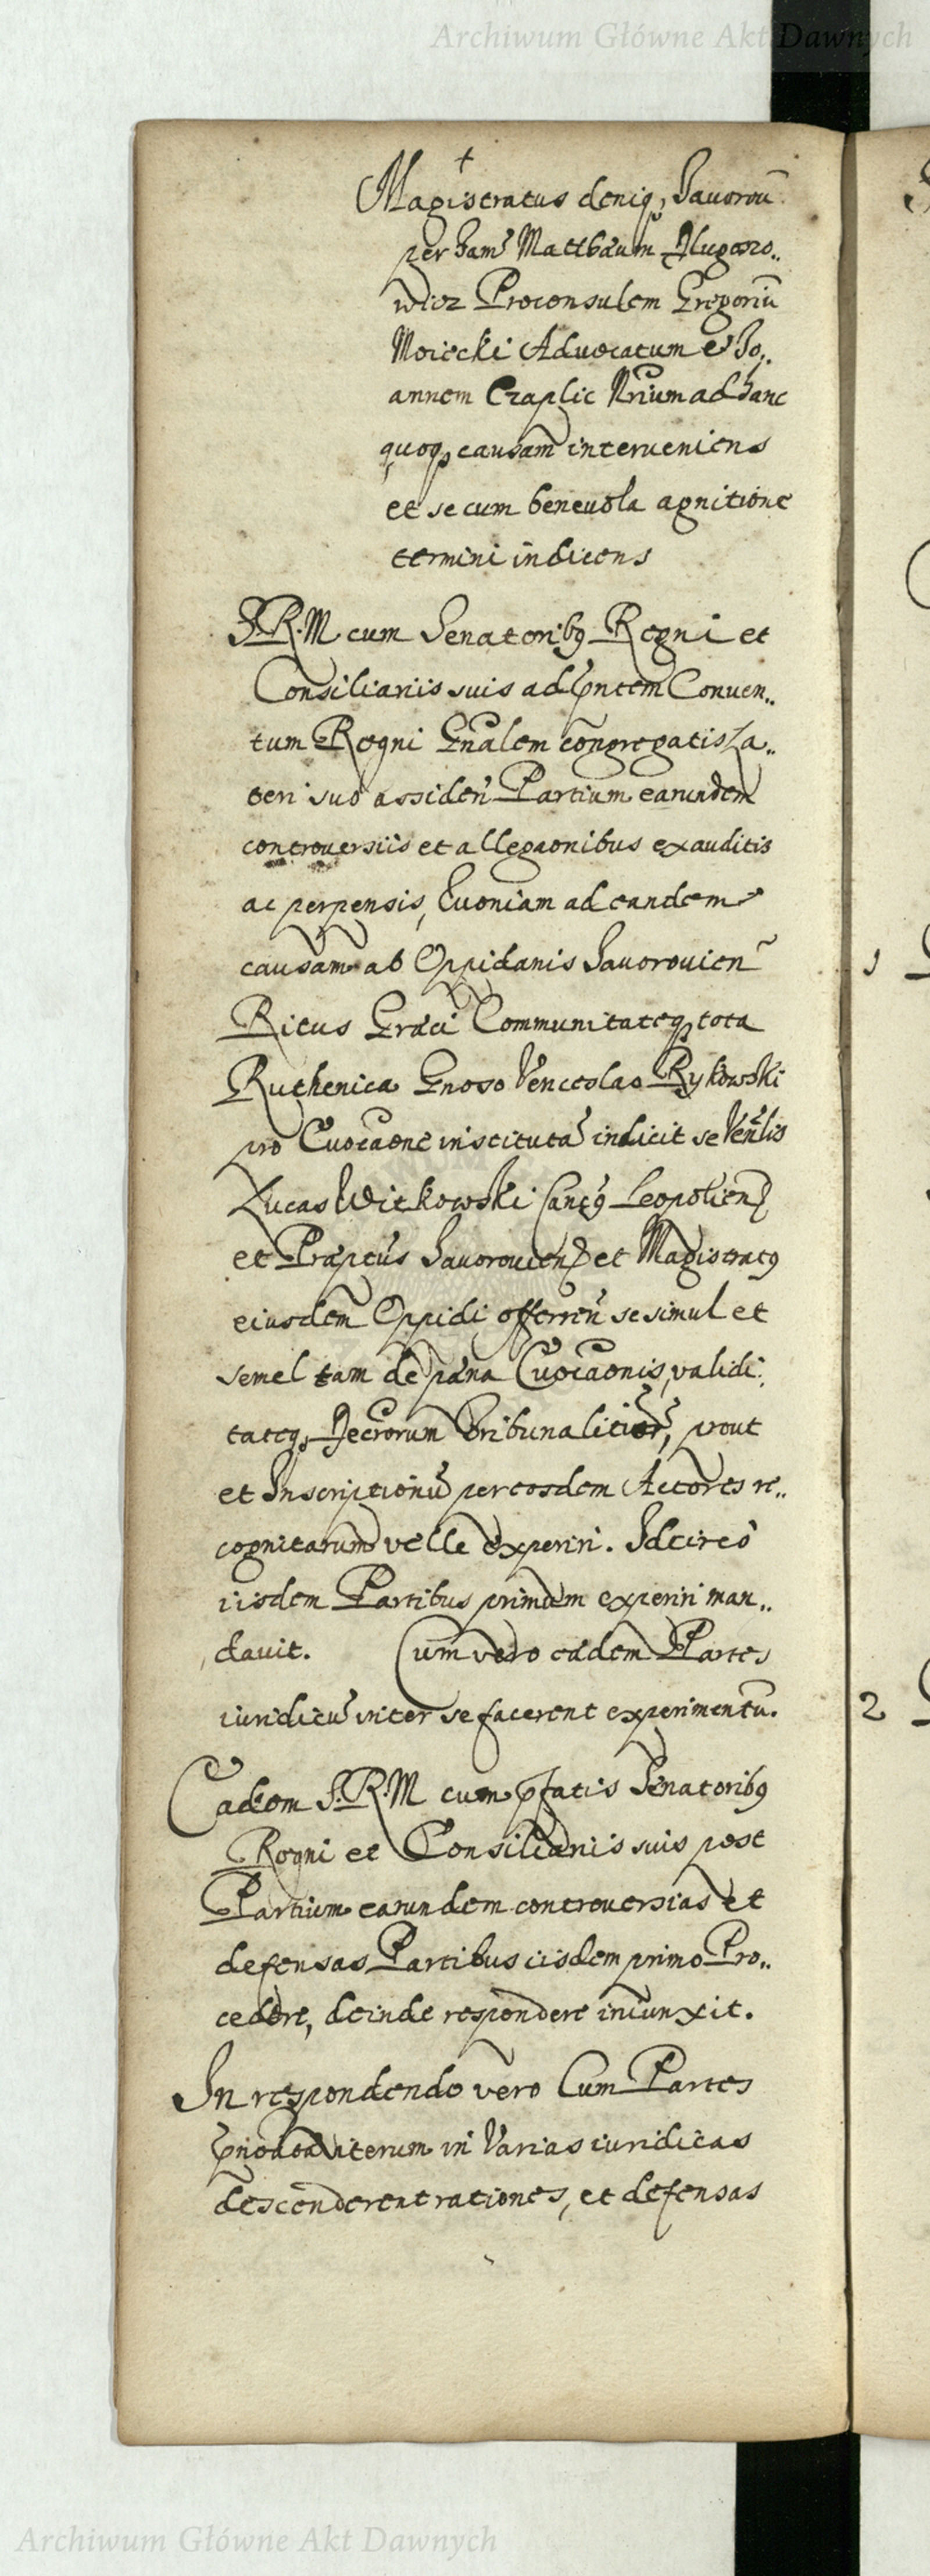 Archiwum Główne Akt Dawnych
Magistratus deniq, Javorou
per ham Matthæum Długoszo..
wicz Proconsulem Gregoriũ
Moiecki Advocatum et Jo..
annem Czaplic Nrium ad hanc
quoq causam interueniens
et se cum beneuola agnitione
termini indicens
S.R.M cum Senatorib9 Regni et
Consiliariis suis ad pntem Conuen..
tum Regni Gnalem congregatis La..
teri suo assiden Partium earundem
controuersiis et allegaonibus exauditis
ac perpensis, Quoniam ad eandem
causam ab Oppidanis Javorouien
Ritus Græci Communitateq tota
Ruthenica Gnoso Venceslao Rykowski
pro Euocaone instituta indicit se Venlis
Lucas Witkowski Canc9 Leopolien
et Præptus Javorouien et Magistrat9
eiusdem Oppidi offerren se simul et
semel tam de pæna Euocaonis, validi
tateq, Decrorum Tribunalitior, prout
et Inscriptionũ per eosdem Actores re..
cognitarum velle experiri. Idcirco
iisdem Partibus primum experiri man..
dauit. Cum vero eædem Partes
iuridicũ inter se facerent experimentũ.
Eadem S.R.M cum pfatis Senatorib9
Regni et Consiliariis suis post
Partium earundem controuersias et
defensas Partibus iisdem primo Pro..
cedere, deinde respondere iniunxit.
In respondendo vero Cum Partes
iterum in Varias iuridicas
descenderent rationes, et defensas
1
2
Archiwum Główne Akt Dawnych